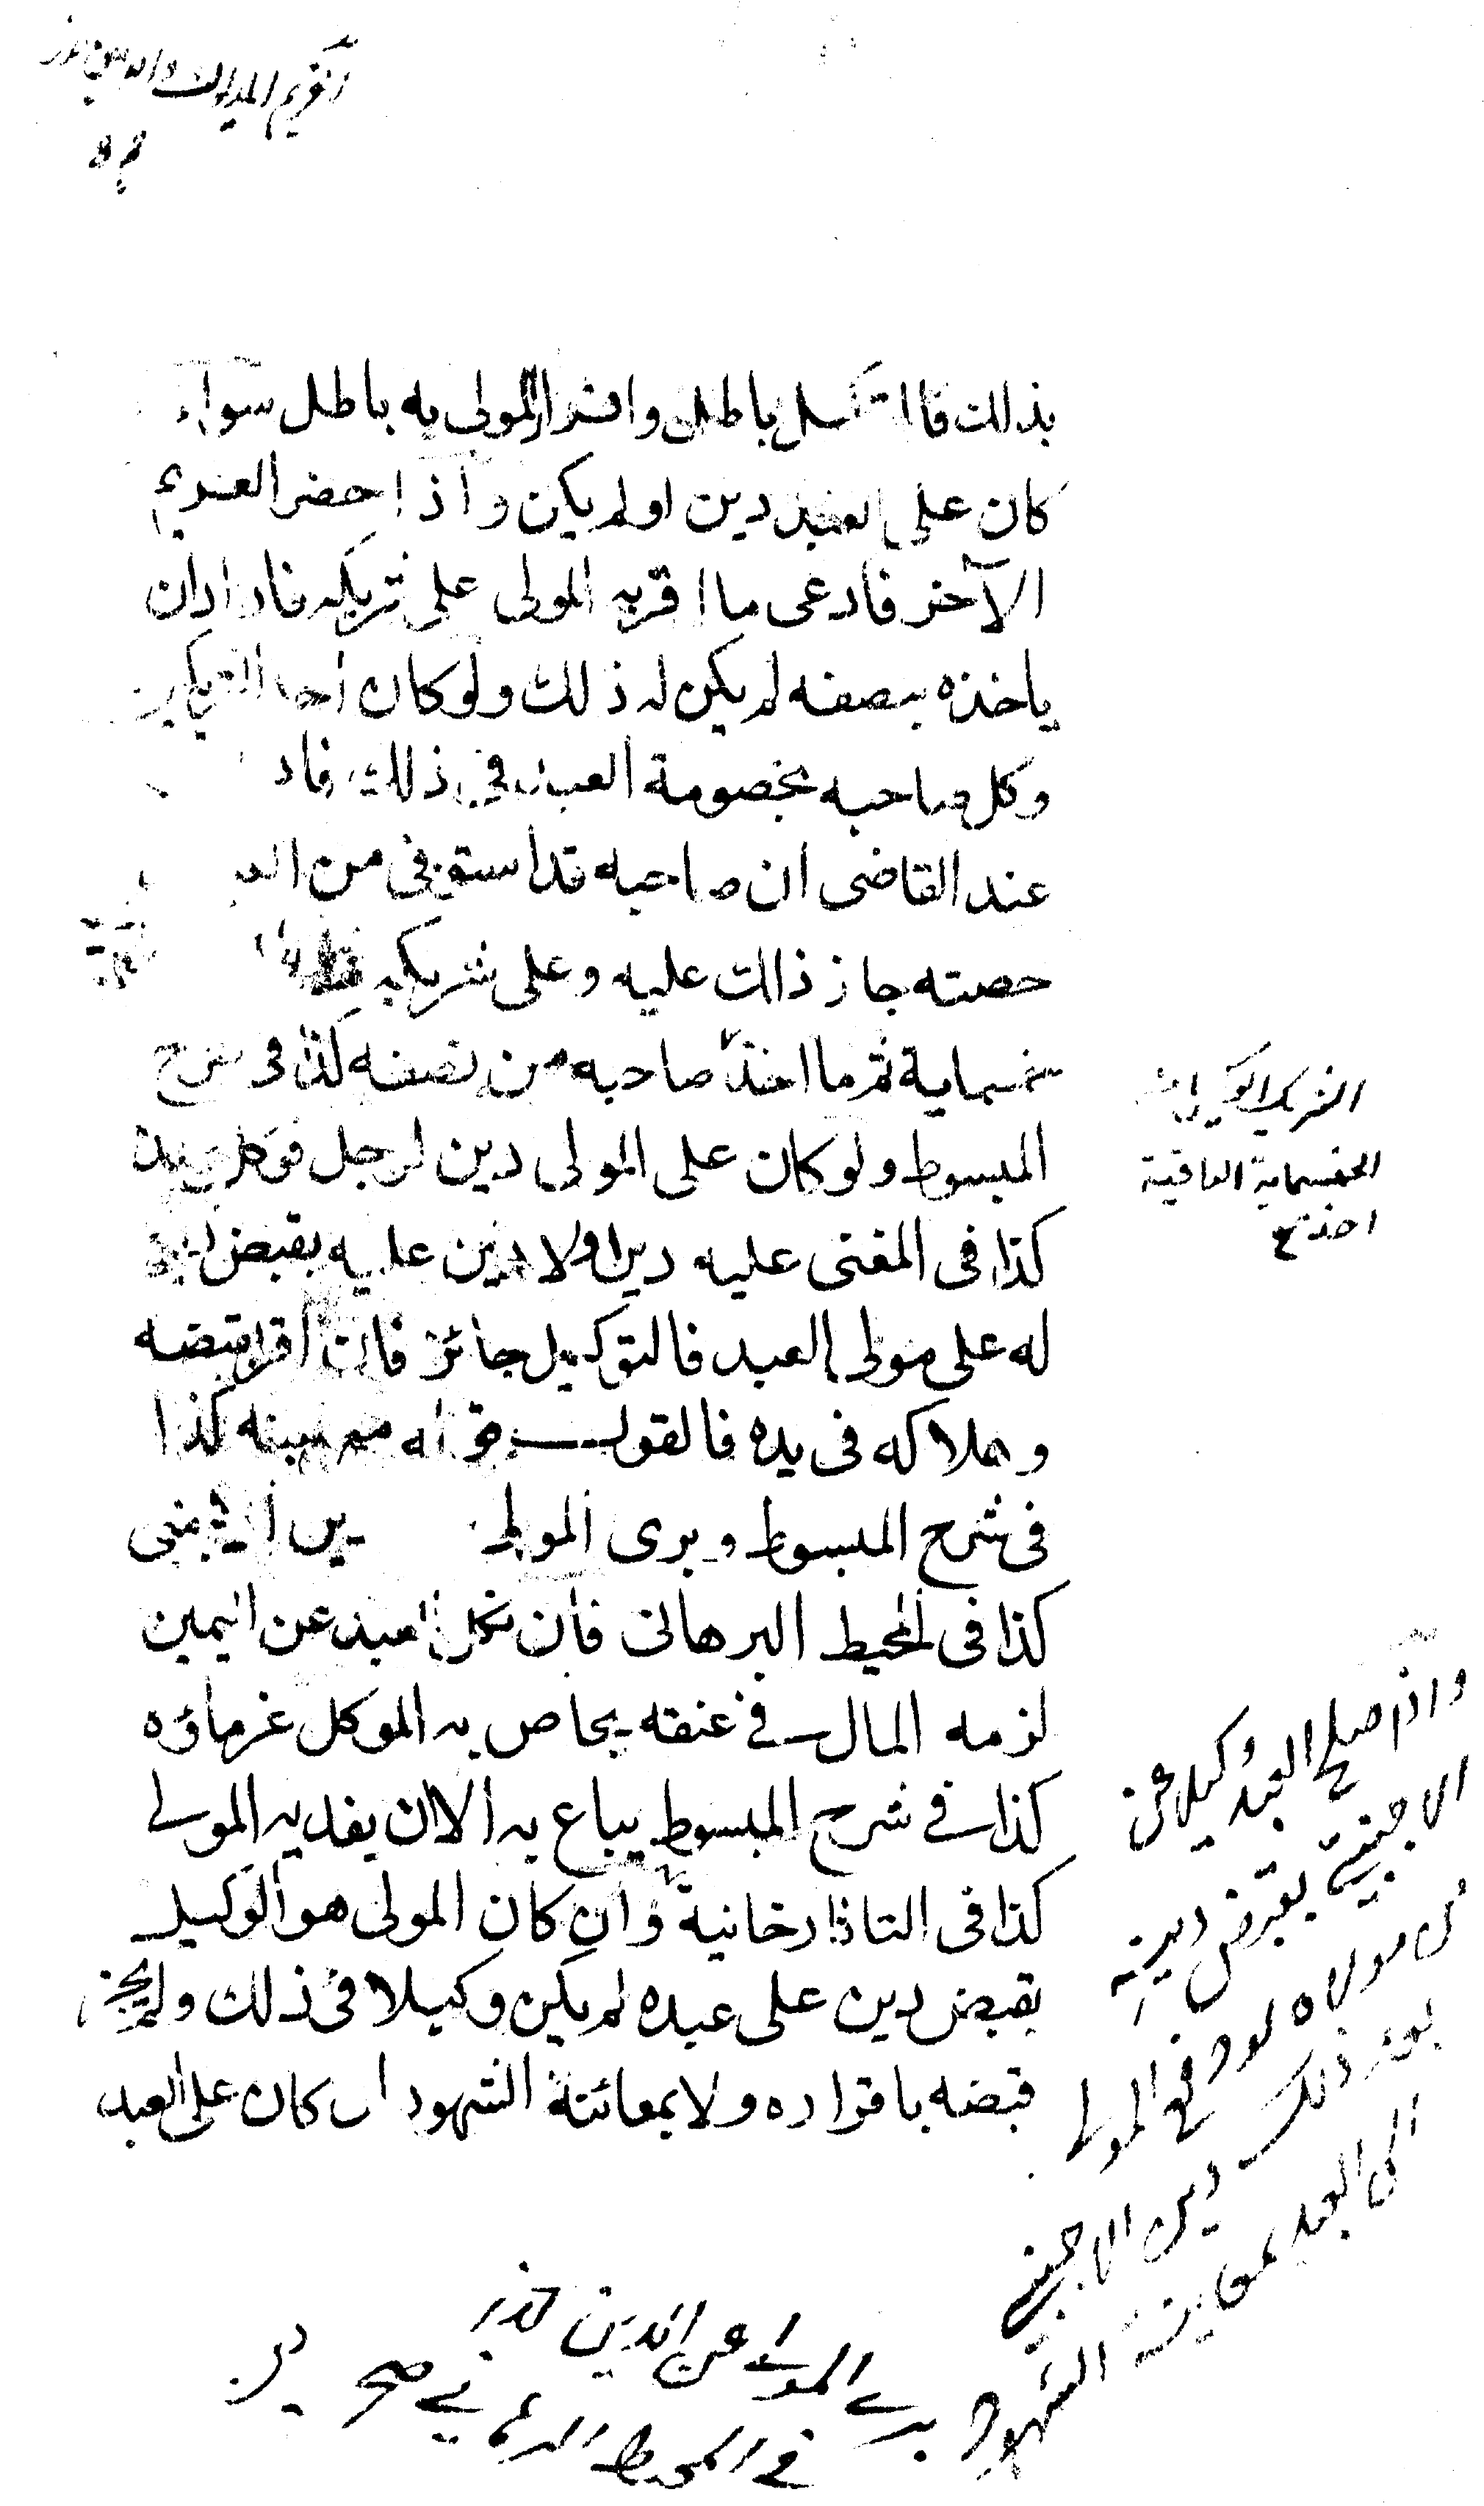 بذلك فالتوكيل باطل واقرار المولى به باطل سواء
كان على العبد دين اولم يكن واذا حضر الغريم
الآخر فادعى ما اقر به المولى على شريكه فاراد ان
ياخذه بنصفه لم يكن له ذلك ولو كان احد الشريكين
وكل صاحبه بخصومة العبد في ذلك فاد
عند القاضى ان صاحبه قد استوفى من العبد
حصته جاز ذلك عليه وعلى شريكه
خمسماية ثم ما اخذ صاحبه من نصفه كذا فى شرح
المبسوط ولو كان على المولى دين لرجل فوكل عبده
كذا فى المغنى عليه دين اولا دين عليه بقبض
له على مولى العبد فالتوكيل جائز فان اقر بقبضه
وهلاكه فى يده فالقول قوله مع يمينه كذا
فى شرح المبسوط وبرى المولى
كذا فى المحيط البرهانى فان نكل العبد عن اليمين
لزمه المال فى عنقه يحاص به الموكل غرماؤه
كذا فى شرح المبسوط يباع به الا ان يفديه المولى
كذا فى التاتارخانية وان كان المولى هو الوكيل
بقبض دين على عبده لم يكن وكيلا فى ذلك ولم يجز
قبضه باقراره ولا بمعائنة الشهود ان كان على العبد
الخمسماية الباقية
واذا صلح العبد وكيلا عن
الاجنبي بقبض دينه
من مولاه لو دفع المولى
بعد ذلك دين الاجنبي
الى العبد بمعاينة الشهود
برى المولى عن الدين
فى المحيط صح